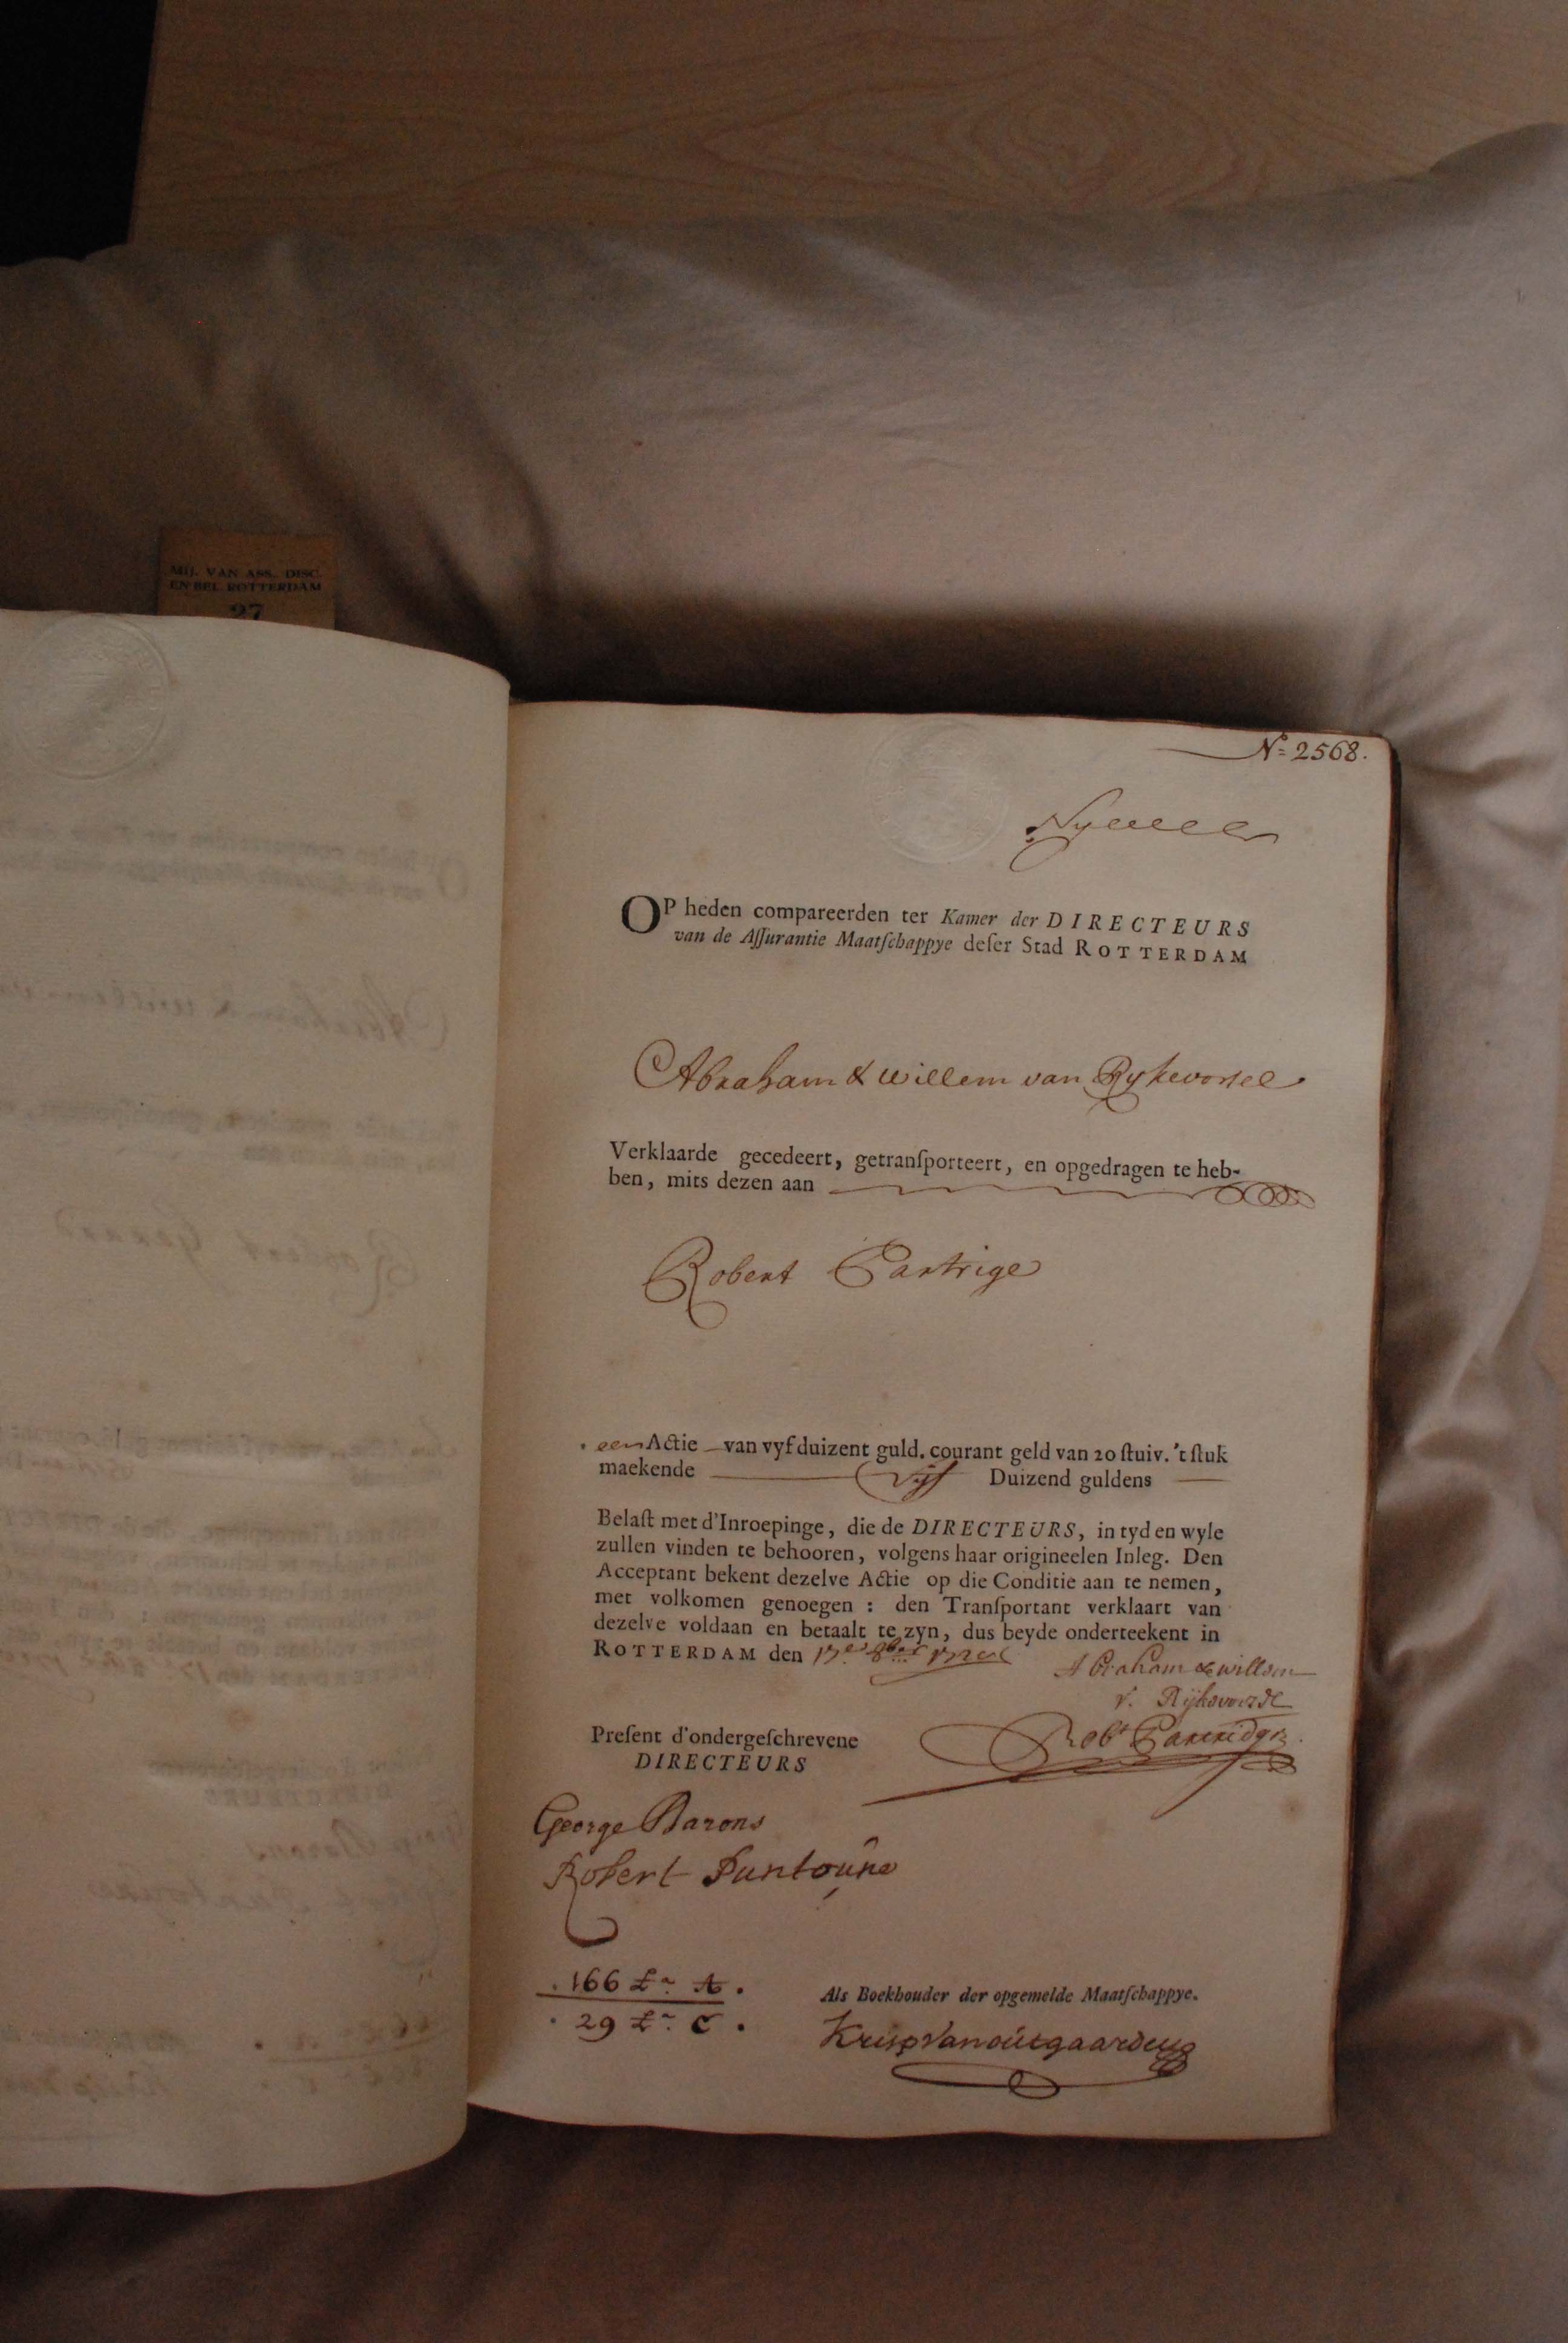 MIJ. VAN ASS. DISC.
EN BEL ROTTERDAM
27
No= 2568.
OP heden compareerden ter Kamer der DIRECTEURS
van de Aſſurantie Maatſchappye deſer Stad ROTTERDAM
Abraham & willem van Rykevorsel
Verklaarde gecedeert, getranſporteert, en opgedragen te heb-
ben, mits dezen aan
Robert Partrige
een Actie van vyf duizent guld. courant geld van 20 ſtuiv. 't ſtuk
maekende vijf Duizend guldens
Belaſt met d'Inroepinge, die de DIRECTEURS, in tyd en wyle
zullen vinden te behooren, volgens haar origineelen Inleg. Den
Acceptant bekent dezelve Actie op die Conditie aan te nemen,
met volkomen genoegen : den Tranſportant verklaart van
dezelve voldaan en betaalt te zyn, dus beyde onderteekent in
ROTTERDAM den 17en 8ber 1720
Abraham & willem
v. Rijkevorsel
Robt Partridge
Preſent d'ondergeſchrevene
DIRECTEURS
George Barons
Robert Duntoune
166 £ A.
29 £ C.
Als Boekhouder der opgemelde Maatſchappye.